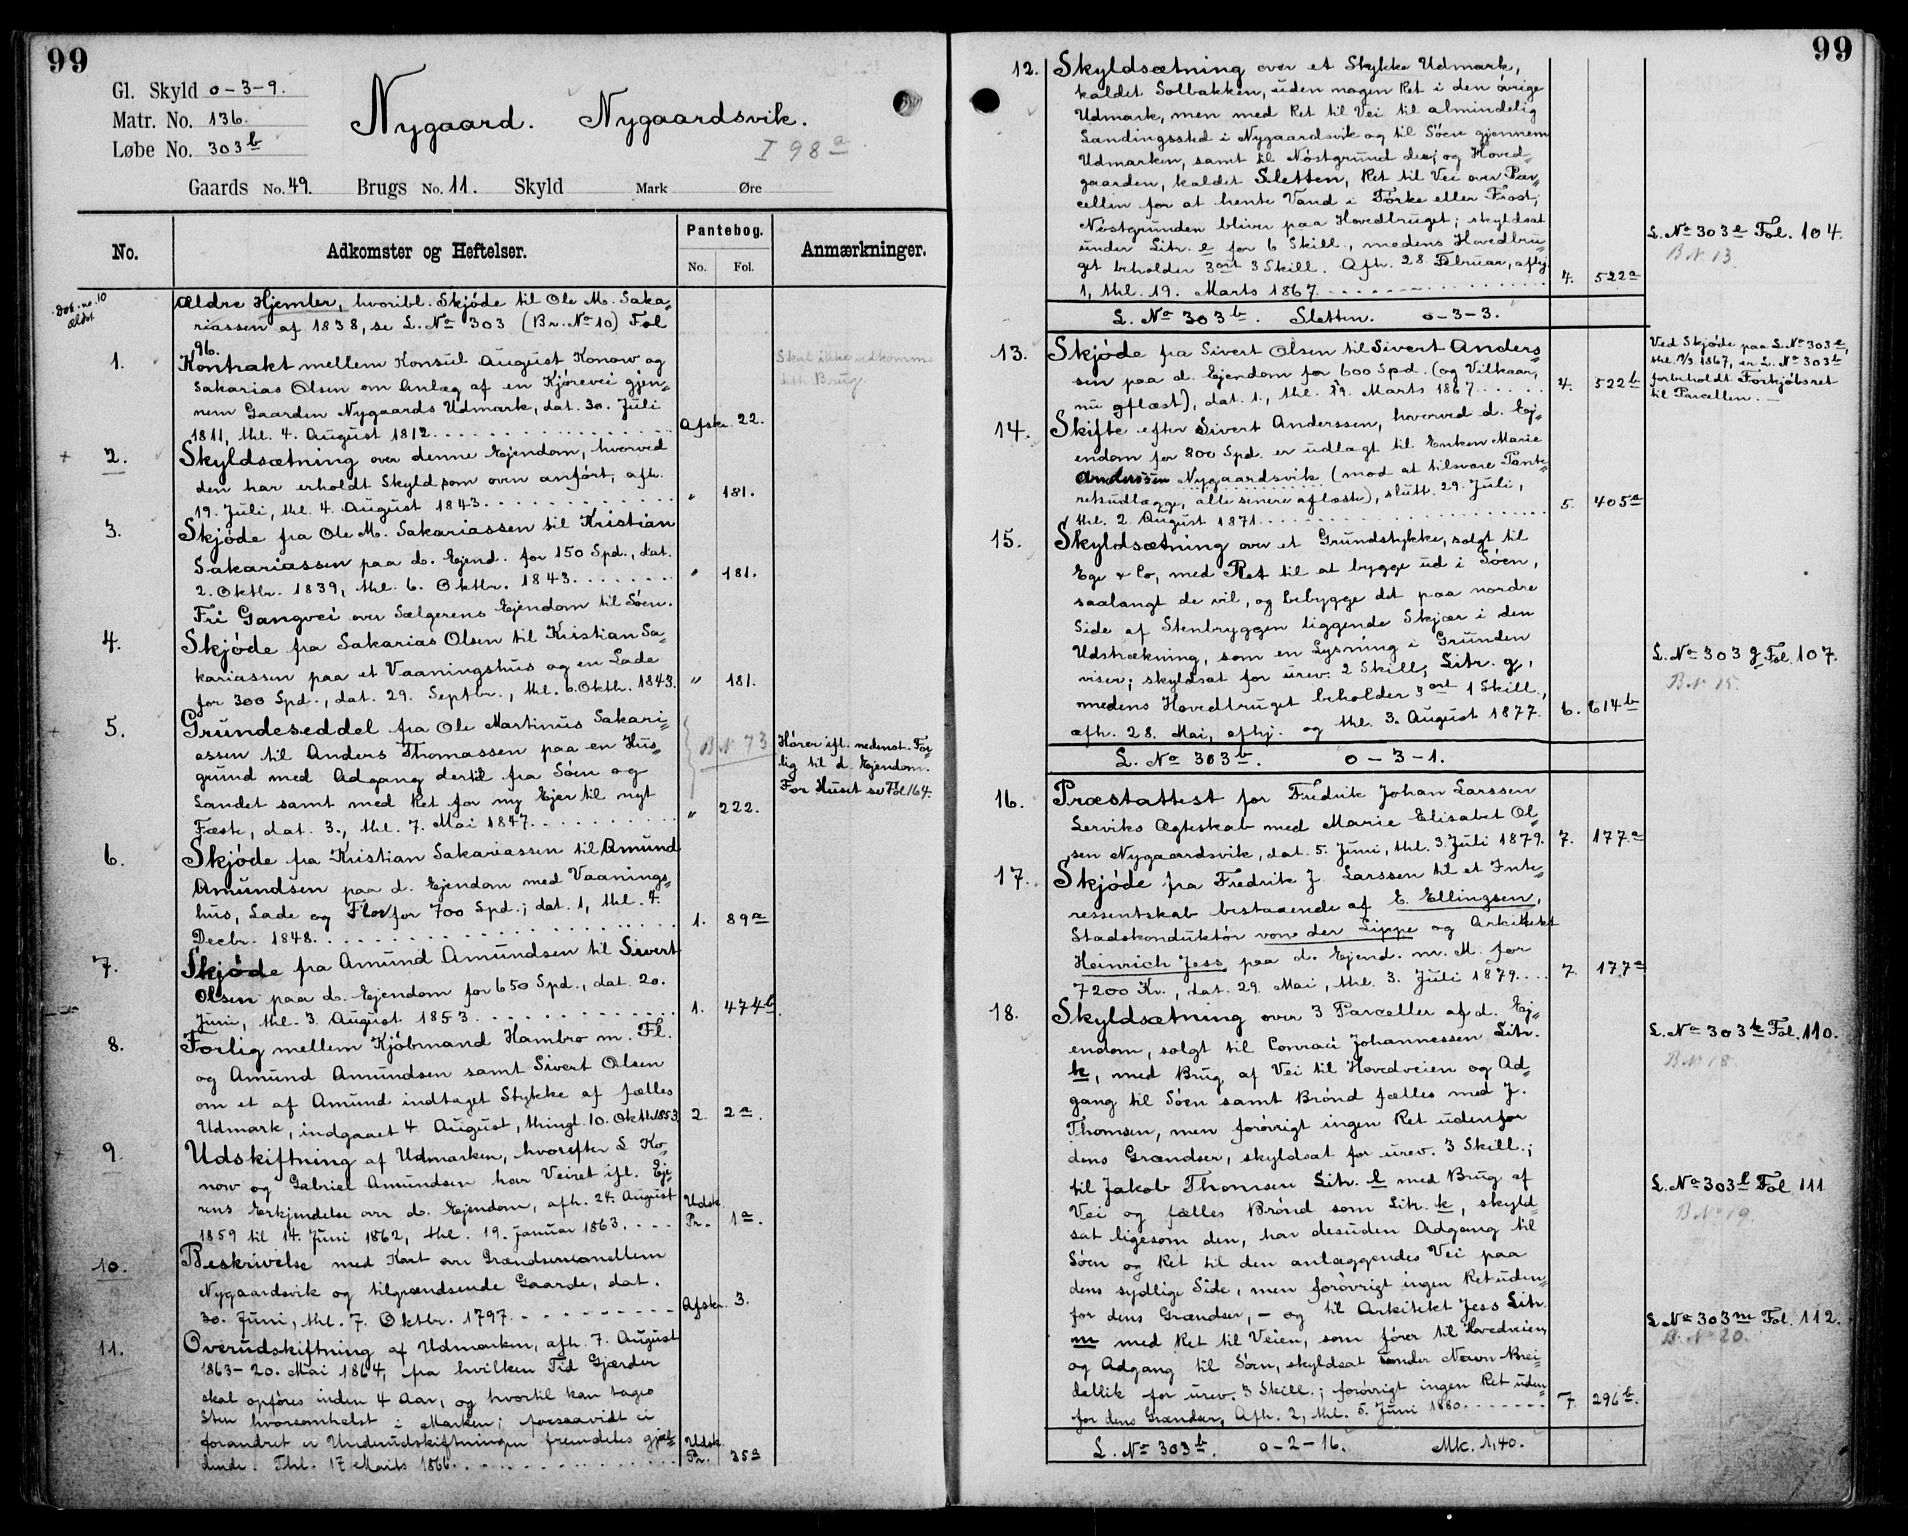 99
Gl. Skyld 0-3-9.
Matr. No. 136.
Løbe No. 303b
Nygaard. Nygaardsvik.
I 98a
Gaards No. 49. Brugs No. 11. Skyld Mark Øre
No. Adkomster og Heftelser. Pantebog. No. Fol. Anmærkninger.
Ældre Hjemler, hvoribl. Skjøde til Ole M. Saka-
riassen af 1838, se L. No 303 (Br. No 10) Fol
96.
1. Kontrakt mellem Konsul August Konow og
Sakarias Olsen om Anlæg af en Kjørevei gjen-
nem Gaarden Nygaards Udmark, dat. 30. Juli
1811, thl. 4. August 1812. Afskr. 22.
Skal ikke vedkomme
dette Brug.
2. Skyldsætning over denne Ejendom, hvorved
den har erholdt Skyld som oven anført, afh.
19. Juli, thl. 4. August 1843. " 181.
3. Skjøde fra Ole M. Sakariassen til Kristian
Sakariassen paa d. Ejend. for 150 Spd., dat.
2. Oktbr. 1839, thl. 6. Oktbr. 1843. " 181.
Fri Gangvei over Sælgerens Ejendom til Søen.
4. Skjøde fra Sakarias Olsen til Kristian Sa-
kariassen paa et Vaaningshus og en Lade
for 300 Spd., dat. 29. Septbr., thl. 6. Oktbr. 1843. " 181.
5. Grundeseddel fra Ole Martinus Sakari-
assen til Anders Thomassen paa en Hus-
grund med Adgang dertil fra Søen og
Landet samt med Ret for ny Ejer til nyt
Fæste, dat. 3., thl. 7. Mai 1847. " 222.
B No 73
Hører ifl. nedenst. For-
lig til d. Ejendom.
For Huset se Fol 164.
6. Skjøde fra Kristian Sakariassen til Amund
Amundsen paa d. Ejendom med Vaanings-
hus, Lade og Flor for 700 Spd.; dat. 1, thl. 4.
Decbr. 1848. 1. 89a
7. Skjøde fra Amund Amundsen til Sivert
Olsen paa d. Ejendom for 650 Spd., dat. 20.
Juni, thl. 3 August 1853. 1. 474b
8. Forlig mellem Kjøbmand Hambro m. Fl.
og Amund Amundsen samt Sivert Olsen
om et af Amund indtaget Stykke af fælles
Udmark, indgaaet 4 August, thingl. 10. Oktbr. 1853. 2. 2a.
9. Udskiftning af Udmarken, hvorefter L Ko-
now og Gabriel Amundsen har Veiret ifl. Eje-
rens Erkjendelse over d. Ejendom, afh. 24. August
1859 til 14. Juni 1862, thl. 19. Januar 1863. Udsk. Pr. 1a.
10. Beskrivelse med Kart over Grændserne mellem
Nygaardsvik og tilgrændsende Gaarde, dat.
30. Juni, thl. 7. Oktbr. 1797. Afskr. 3.
11. Overudskiftning af Udmarken, afh. 7. August
1863 - 20. Mai 1864, fra hvilken Tid Gjærder
skal opføres inden 4 Aar, og hvortil kan tages
Sten hvorsomhelst i Marken; forsaavidt ei
forandret er Underudskiftningen fremdeles gjæl-
dende. Thl. 17 Marts 1866. Udsk. Pr. 35a
99
12. Skyldsætning over et Stykke Udmark,
kaldet Solbakken, uden nogen Ret i den øvrige
Udmark, men med Ret til Vei til almindelig
Landingssted i Nygaardsvik og til Søen gjennem
Udmarken, samt til Nøstgrund der; og Hoved-
gaarden, kaldet Sletten, Ret til Vei over Par-
cellen for at hente Vand i Tørke eller Frost;
Nøstgrunden bliver paa Hovedbruget; skyldsat
under Litr. e for 6 Skill., medens Hovedbru-
get beholder 3 ort 3 Skill. Afh. 28. Februar, afhj.
1, thl. 19. Marts 1867. 4. 522a
L. No 303e Fol. 104.
B No 13.
L. No 303b. Sletten. 0-3-3.
13. Skjøde fra Sivert Olsen til Sivert Anders-
sen paa d. Ejendom for 600 Spd. (og Vilkaar,
nu aflæst), dat. 1., thl. 19. Marts 1867. 4. 522b
Ved Skjøde paa L. No 303e,
thl. 19/3 1867, er L. No 303b
forbeholdt Forkjøbsret
til Parcellen.
14. Skifte efter Sivert Anderssen, hvorved d. Ej-
endom for 800 Spd. er udlagt til Enken Marie
Anderssen Nygaardsvik (mod at tilsvare Pante-
retsudlægg, alle senere aflæste), slutt. 29. Juli,
thl. 2. August 1871. 5. 405a
15. Skyldsætning over et Grundstykke, solgt til
Ege & Co, med Ret til at bygge ud i Søen,
saalangt de vil, og bebygge det paa nordre
Side af Stenbryggen liggende Skjær i den
Udstrækning, som en Lysning i Grunden
viser; skyldsat for urev. 2 Skill, Litr. g,
medens Hovedbruget beholder 3 ort 1 Skill.,
afh. 28. Mai, afhj. og thl. 3. August 1877. 6. 614b
L. No 303g Fol. 107.
B No 15.
L. No 303b. 0-3-1.
16. Præstattest for Fredrik Johan Larssen
Lerviks Ægteskab med Marie Elisabet Ol-
sen Nygaardsvik, dat. 5. Juni, thl. 3. Juli 1879. 7. 177a
17. Skjøde fra Fredrik J. Larssen til et Inte-
ressentskab bestaaende af E. Ellingsen,
Stadskonduktør von der Lippe og Arkitekt
Heinrich Jess paa d. Ejend. m. M. for
7200 Kr., dat. 29. Mai, thl. 3. Juli 1879. 7. 177a
18. Skyldsætning over 3 Parceller af d. Ej-
endom, solgt til Conrad Johannessen Litr.
k, med Brug af Vei til Hovedveien og Ad-
gang til Søen samt Brønd fælles med J.
Thomsen, men forøvrigt ingen Ret udenfor
dens Grændser, skyldsat for urev. 3 Skill.;
til Jakob Thomsen Litr. l med Brug af
Vei og fælles Brønd som Litr. k, skyld-
sat ligesom den, har desuden Adgang til
Søen og Ret til den anlæggendes Vei paa
dens sydlige Side, men forøvrigt ingen Ret uden-
for dens Grændser, - og til Arkitekt Jess Litr.
m med Ret til Veien, som fører til Hovedveien,
og Adgang til Søen, skyldsat under Navn Brei-
dablik for urev. 3 Skill.; forøvrigt ingen Ret uden-
for dens Grændser, Afh. 2, thl. 5. Juni 1880. 7. 296b.
L. No 303k Fol. 110.
B No 18.
L. No 303l Fol 111
B No 19.
L. No 303m Fol. 112.
B. No 20.
L. No 303b. 0-2-16. Mk. 1,40.